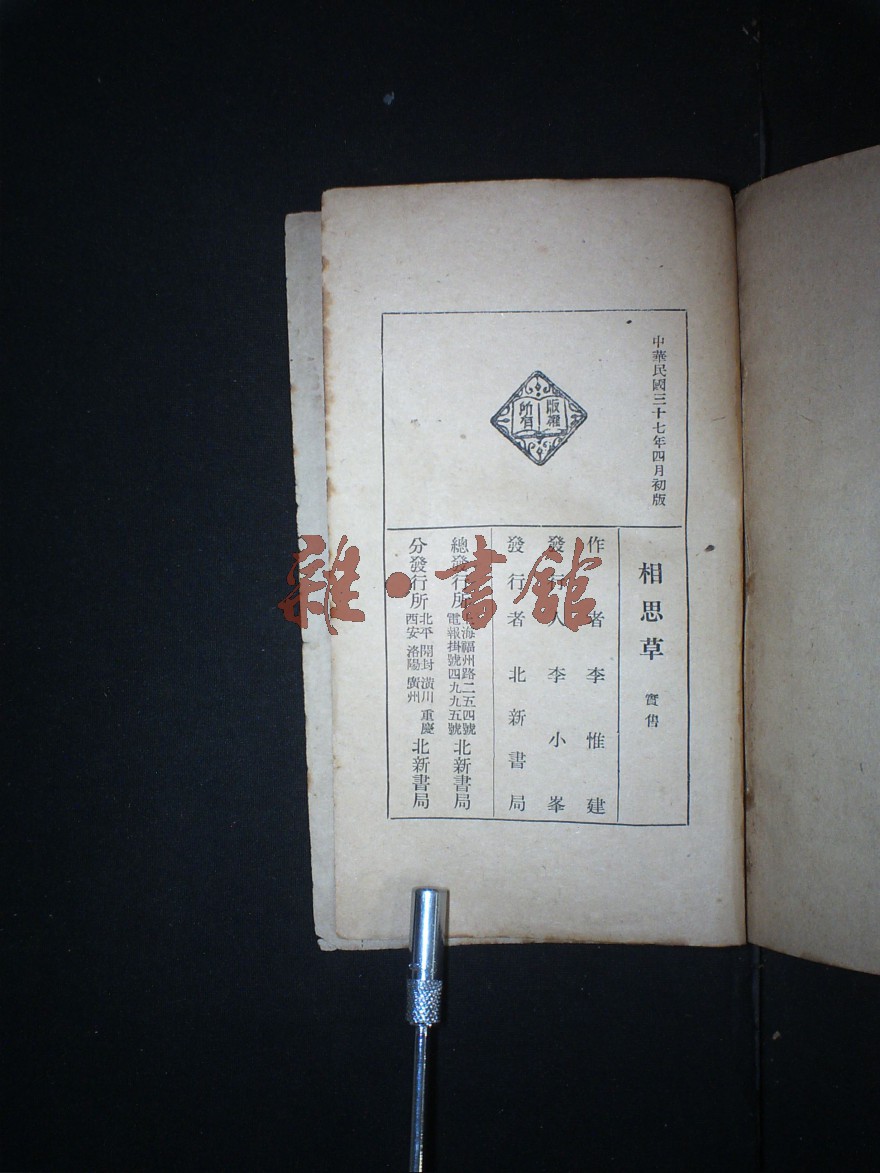 中華民國三十七年四月初版
版權
所有
相思草 實售
作者 李惟建
發行人 李小峯
發行者 北新書局
總發行所 上海福州路二五四號 電報掛號四九九五號 北新書局
分發行所 北平 開封 潢川 重慶 西安 洛陽 廣州 北新書局
雜·書館